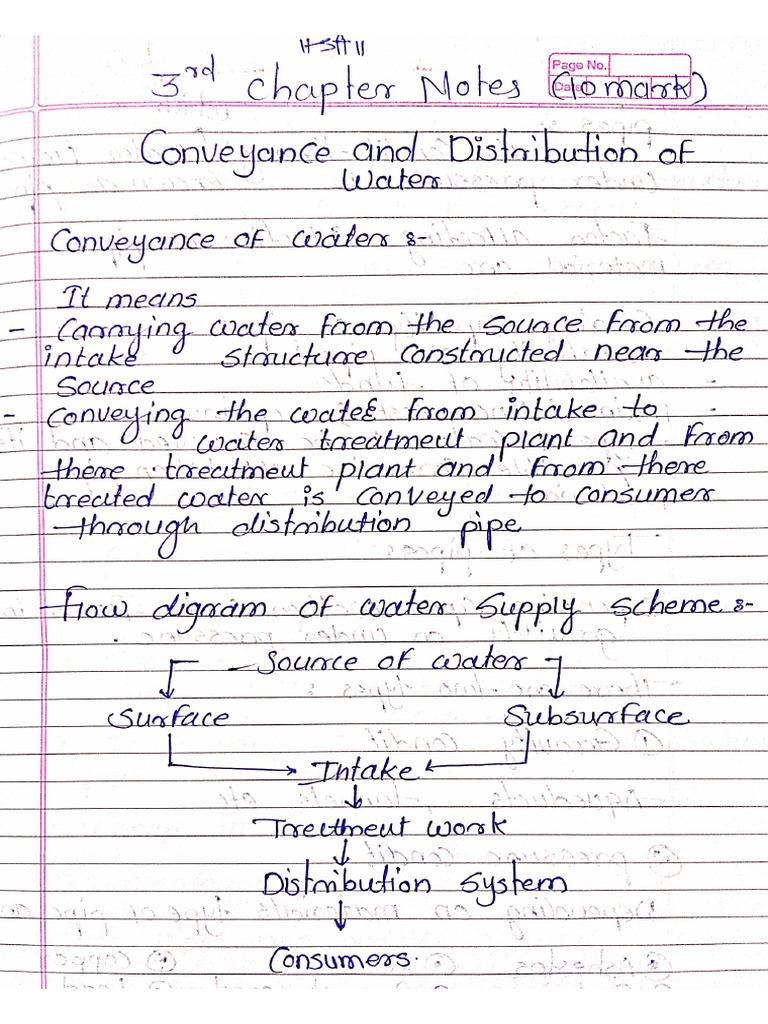 3rd Chapter Notes (10 mark)
Page No.
Date
Conveyance and Distribution of
Water
Conveyance of water :-
It means
- Carrying water from the source from the
intake structure constructed near the
Source
- Conveying the water from intake to
water treatment plant and from
there treatment plant and from there
treated water is conveyed to consumer
through distribution pipe
Flow digram of water supply scheme :-
Source of water
Surface Subsurface
Intake
Treetment work
Distribution system
Consumers.